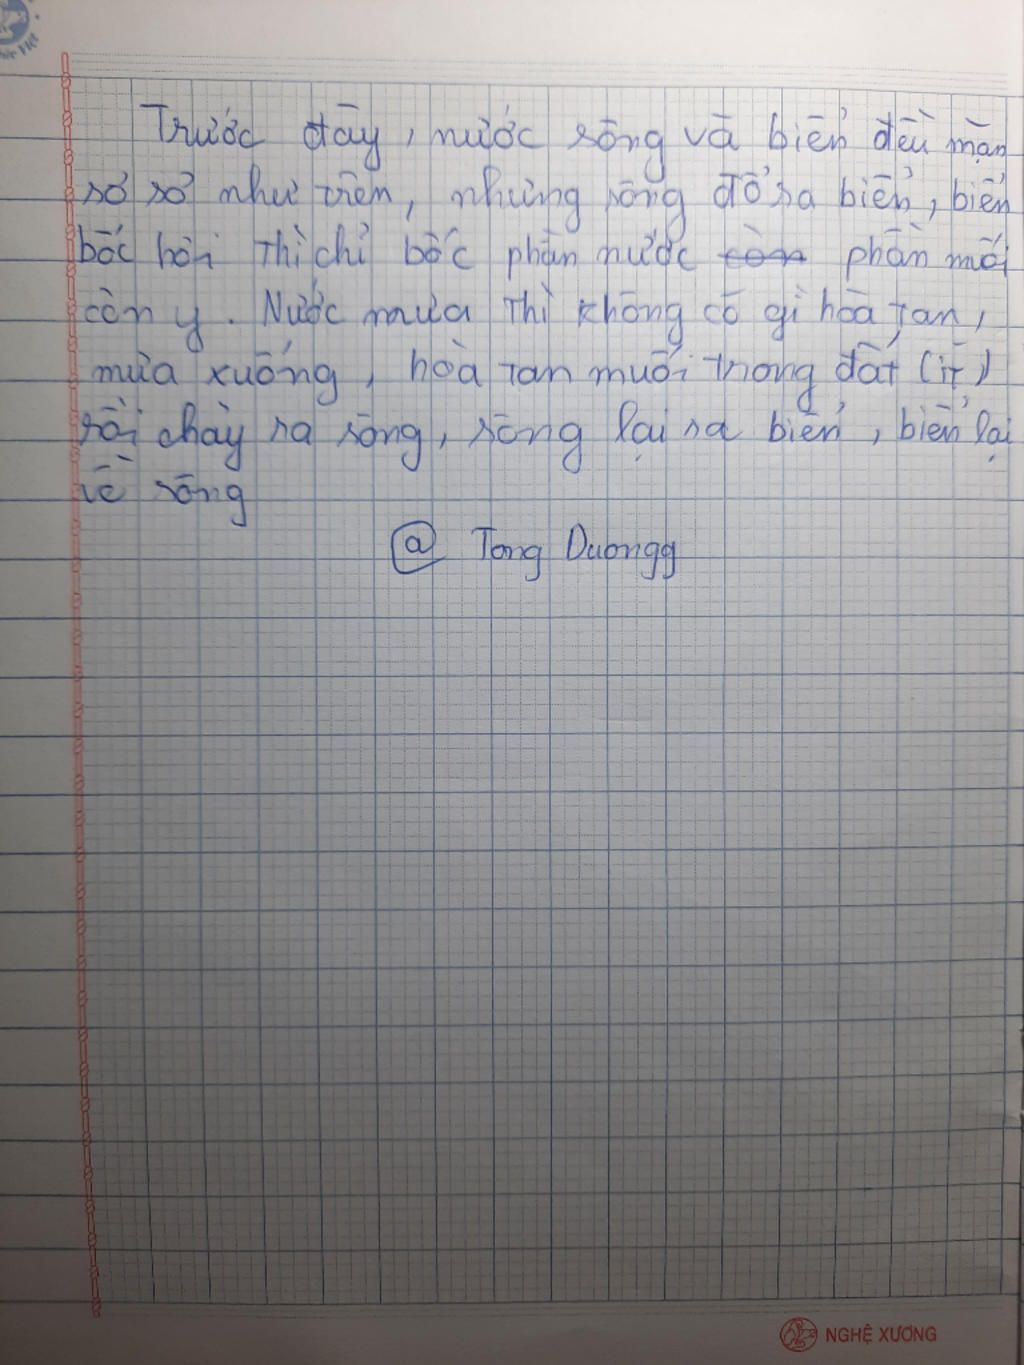 Trước đây, nước sông và biển đều mặn
sơ sơ như trên, nhưng sông đổ ra biển, biển
bốc hơi thì chỉ bốc phần nước còn phần muối
còn y. Nước mưa thì không có gì hòa tan,
mưa xuống, hòa tan muối trong đất (ít)
rồi chảy ra sông, sông lại ra biển, biển lại
về sông
@ Tong Duongg
NGHỆ XƯƠNG